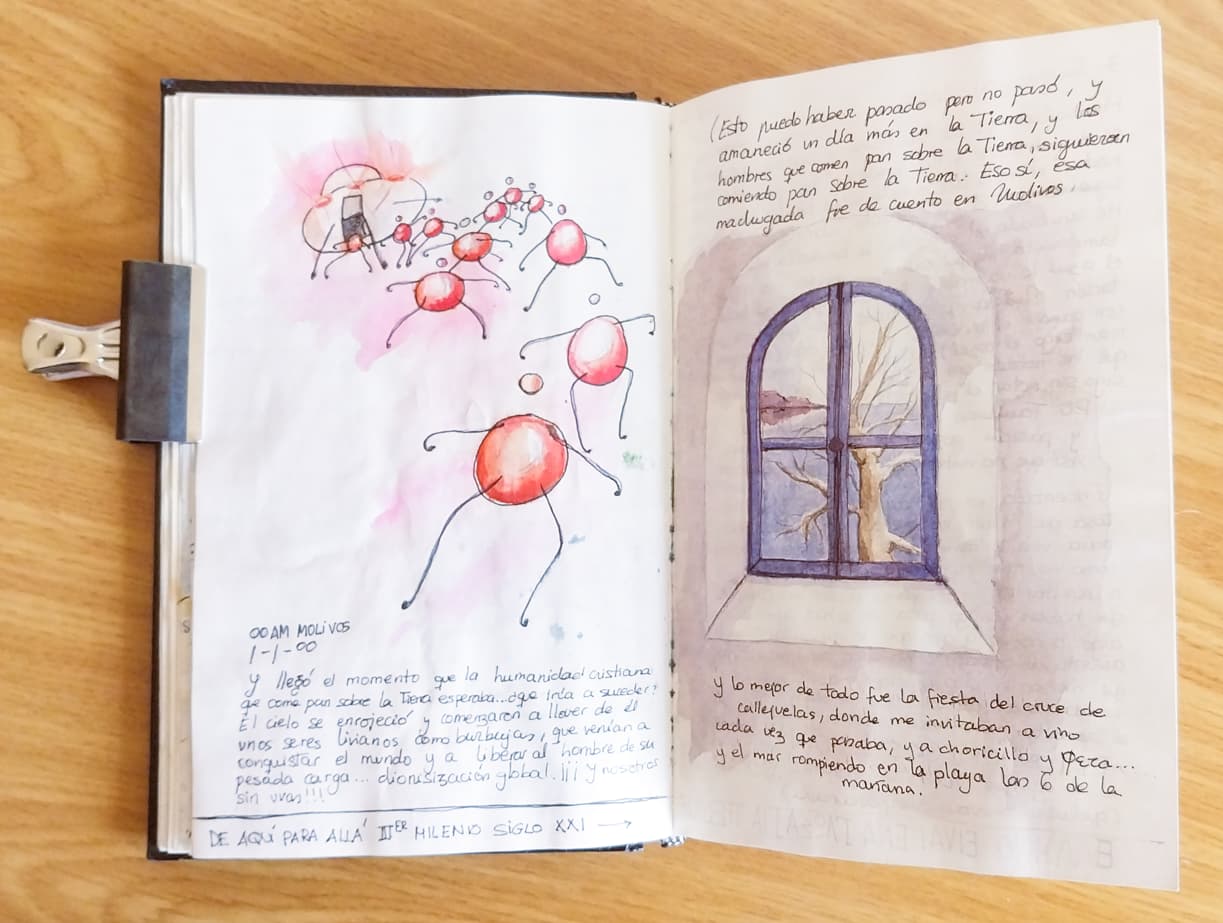 00 AM MOLIVOS
1-1-00
Y llegó el momento que la humanidad cristiana
que come pan sobre la Tierra esperaba...¿que iría a suceder?
El cielo se enrojeció y comenzaron a llover de él
unos seres livianos como burbujas, que venían a
conquistar el mundo y a liberar al hombre de su
pesada carga... dionisización global. ¡¡¡ Y nosotros
sin uvas!!!
DE AQUÍ PARA ALLÁ IIIER MILENIO SIGLO XXI →
(Esto puedo haber pasado pero no pasó, y
amaneció un día más en la Tierra, y los
hombres que comen pan sobre la Tierra, siguieron
comiendo pan sobre la Tierra.. Eso sí, esa
madrugada fue de cuento en Molivos.
y lo mejor de todo fue la fiesta del cruce de
callejuelas, donde me invitaban a vino
cada vez que pasaba, y a choricillo y Φετα...
y el mar rompiendo en la playa las 6 de la
mañana.